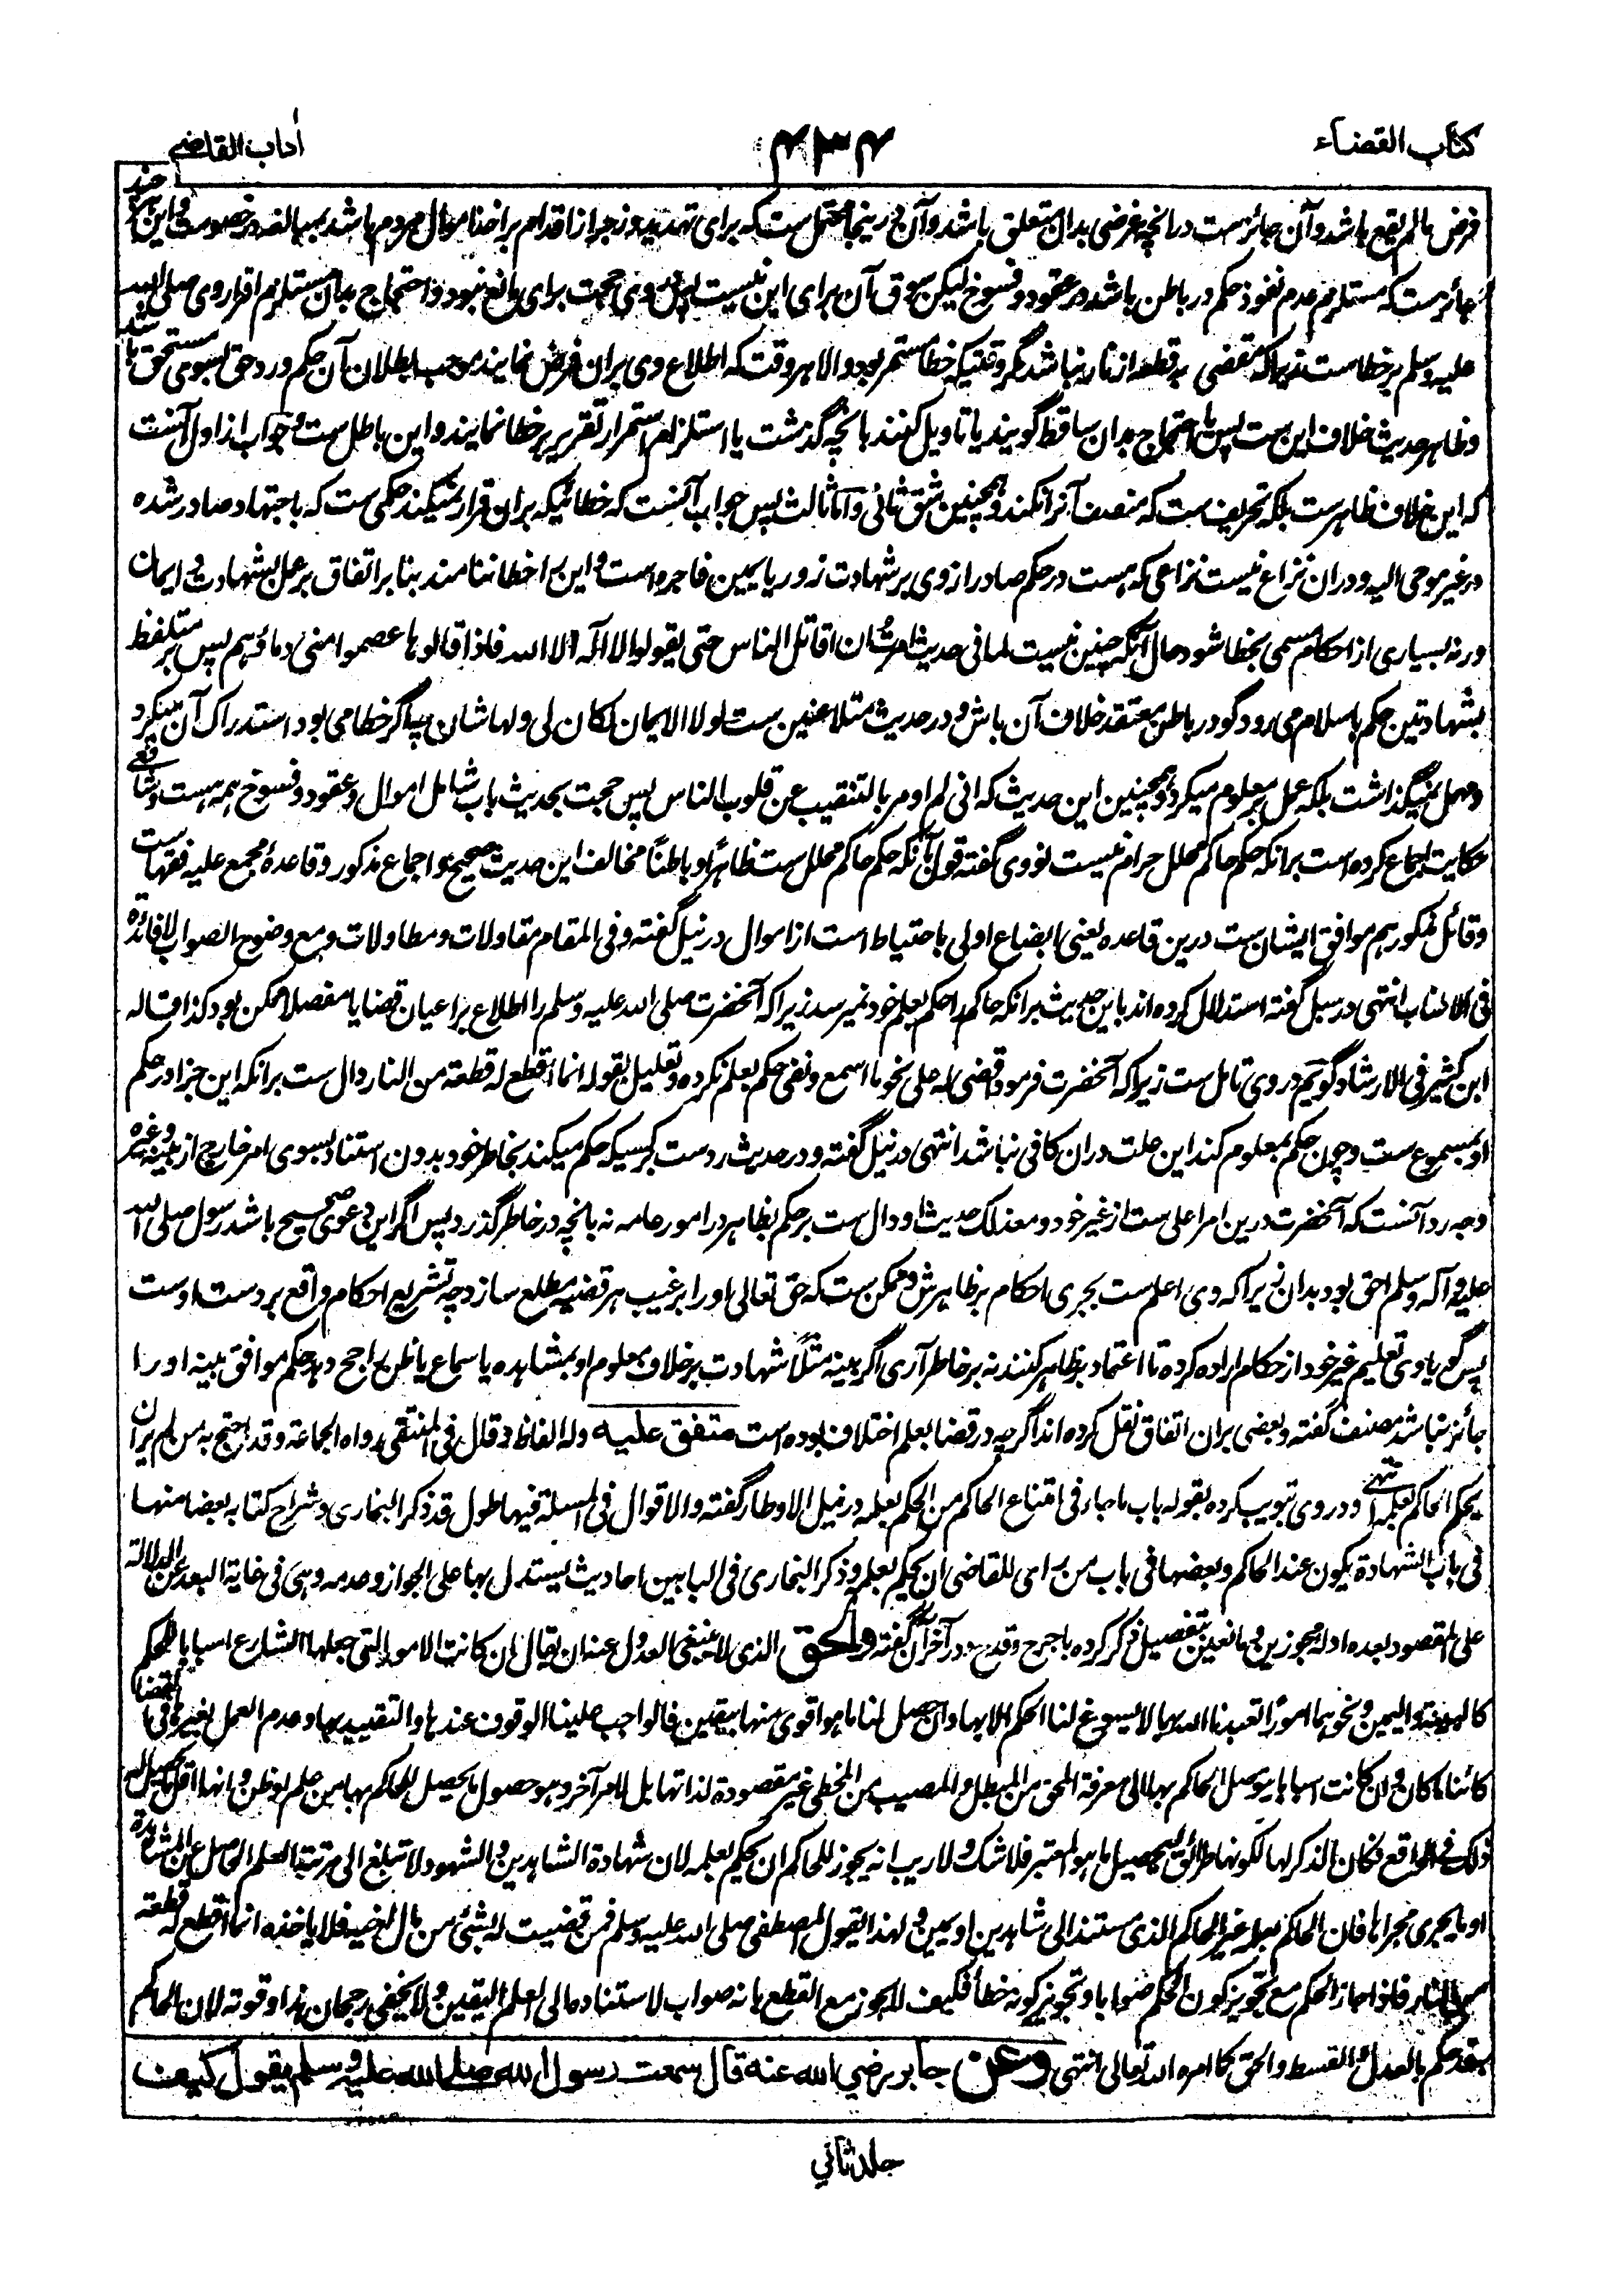 كتاب القضاء
۴۳۴
آداب القاضي
فرض مالم یقع باشد و آن جائزست در آنچه غرضی بدان متعلق باشد و آن درینجا محتمل ست که برای تهدید و زجر از اقدام بر اخذ اموال مردم باشد بمبالغه در خصومت و این هر چند
جائزست که مستلزم عدم نفوذ حکم در باطن باشد در عقود و فسوخ لیکن سوق آن برای این نیست پس دروی حجت برای مانع نبود و احتجاج بدان مستلزم اقرار وی صلی الله
علیه وسلم بر خطاست زیرا که مقضی به قطعه از نار نباشد مگر وقتیکه خطا مستمر بود والا هر وقت که اطلاع وی بران فرض نمایند موجب ابطلان آن حکم و رد حق بسوی مستحق باشد
و ظاهر حدیث خلاف این ست پس یا احتجاج بدان ساقط گویند یا تاویل کنند بانچه گذشت یا استلزام استمرار تقریر بر خطا نمایند و این باطل ست و جواب از اول آنست
که این خلاف ظاهرست بلکه تحریف ست که منصف آنرا نکند و همچنین شق ثانی و اما ثالث پس جواب آنست که خطائیکه بران قرار نمیکند حکمی ست که باجتهاد صادر شده
در غیر موحی الیه و دران نزاع نیست نزاعی که هست در حکم صادر از وی بر شهادت زور یا یمین فاجره است و این را خطا ننامند بنابر اتفاق بر عمل بشهادت و ایمان
ورنه بسیاری از احکام مسمی بخطا شود حال آنکه چنین نیست لما فی حدیث امرت ان اقاتل الناس حتی یقولوا لا اله الا الله فاذا قالوها عصموا منی دماءهم پس بر متلفظ
بشهادتین حکم باسلام می رود گو در باطن معتقد خلاف آن باشد و در حدیث متلاعنین ست لولا الایمان لکان لی ولها شان پس اگر خطا می بود استدراک آن میکرد
و مهمل نمیگذاشت بلکه عمل بر معلوم میکرد و همچنین این حدیث که انی لم اومر بالتنقیب عن قلوب الناس پس حجت بحدیث باب شامل اموال و عقود و فسوخ همه هست و شافعی
حکایت اجماع کرده است برانکه حکم حاکم محلل حرام نیست نووی گفته قول بانکه حکم حاکم محلل ست ظاهراً و باطناً مخالف این حدیث صحیح و اجماع مذکور و قاعدهٔ مجمع علیه فقهاست
و قائل مذکور هم موافق ایشان ست درین قاعده یعنی ابضاع اولی باحتیاط است از اموال در نیل گفته و فی المقام مقاولات و مطاولات و مع وضوح الصواب لا فائدة
فی الاطناب انتهی در سبل گفته استدلال کرده اند باین حدیث برانکه حاکم را حکم بعلم خود نمیرسد زیرا که آنحضرت صلی الله علیه وسلم را اطلاع بر اعیان قضایا مفصلا ممکن بود کذا قاله
ابن کثیر فی الارشاد گویم دروی تامل ست زیرا که آنحضرت فرمود فاقضی له علی نحو ما اسمع و نفی حکم بعلم نکرده و تعلیل بقوله انما اقطع له قطعة من النار دال ست برانکه این جزا در حکم
او بمسموع ست و چون حکم بمعلوم کند این علت دران کافی نباشد انتهی در نیل گفته و در حدیث ردست بر کسیکه حکم میکند بخاطر خود بدون استناد بسوی امر خارج از بینه و غیره
وجه رد آنست که آنحضرت درین امر اعلی ست از غیر خود و معذلک حدیث او دال ست بر حکم بظاهر در امور عامه نه بانچه در خاطر گذرد پس اگر این دعوی صحیح باشد رسول صلی الله
علیه و آله وسلم احق بود بدان زیرا که وی اعلم ست بجری احکام بر ظاهرش و ممکن ست که حق تعالی او را بر غیب هر قضیه مطلع سازد چه تشریع احکام واقع بر دست اوست
پس گویا وی تعلیم غیر خود از حکام اراده کرده تا اعتماد بر ظاهر کنند نه بر خاطر آری اگر بینه مثلاً شهادت بر خلاف معلوم او بمشاهده یا سماع یا ظن راجح دهد حکم موافق بینه او را
جائز نباشد مصنف گفته و بعضی بران اتفاق نقل کرده اند اگرچه در قضا بعلم اختلاف بوده است متفق علیه وله الفاظ قال فی المنتقی رواه الجماعة و قد احتج به من لم یران
یحکم الحاکم بعلمه انتهی و دروی تبویب کرده بقوله باب ما جاء فی امتناع الحاکم من الحکم بعلمه در نیل الاوطار گفته والاقوال فی المسئلة فیها طول قد ذکر البخاری و شراح کتابه بعضا منها
فی باب الشهادة یکون عند الحاکم و بعضها فی باب من رای للقاضی ان یحکم بعلمه و ذکر البخاری فی البابین احادیث یستدل بها علی الجواز و عدمه وهی فی غایة البعد عن الدلالة
علی المقصود بعده ادله مجوزین و مانعین بتفصیل ذکر کرده با جرح و قدح و در آخر آن گفته والحق الذی لا ینبغی العدول عنه ان یقال ان کانت الامور التی جعلها الشارع اسبابا للحکم
کالبینة والیمین و نحوهما امورًا تعبدنا الله بها لا یسوغ لنا الحکم الا بها وان حصل لنا ما هو اقوی منها بیقین فالواجب علینا الوقوف عندها والتقیید بها و عدم العمل بغیرها فی القضاء
کائنا ما کان وان کانت اسبابا یتوصل الحاکم بها الی معرفة المحق من المبطل والمصیب من المخطی غیر مقصودة لذاتها بل لامر آخر وهو حصول ما یحصل للحاکم بها من علم او ظن وانها اقل ما یحصل له
ذلک فی الواقع فکان الذکر لها لکونها طرائق لتحصیل ما هو المعتبر فلا شک ولا ریب انه یجوز للحاکم ان یحکم بعلمه لان شهادة الشاهدین والشهود لا تبلغ الی مرتبة العلم الحاصل عن المشاهدة
او ما یجری مجراها فان الحاکم بعلمه غیر الحاکم الذی مستندا الی شاهدین او یمین و لهذا یقول المصطفی صلی الله علیه وسلم فمن قضیت له بشئ من مال اخیه فلا یاخذه انما اقطع له قطعة
من النار فاذا جاز الحکم مع تجویز کون الحکم صوابا و تجویز کونه خطأ فکیف لا یجوز مع القطع بانه صواب لاستناده الی العلم الیقین ولا یخفی رجحان هذا و قوته لان الحاکم به
قد حکم بالعدل والقسط والحق کما امره الله تعالی انتهی وعن جابر رضي الله عنه قال سمعت رسول الله صلى الله عليه وسلم يقول كيف
جلد ثاني